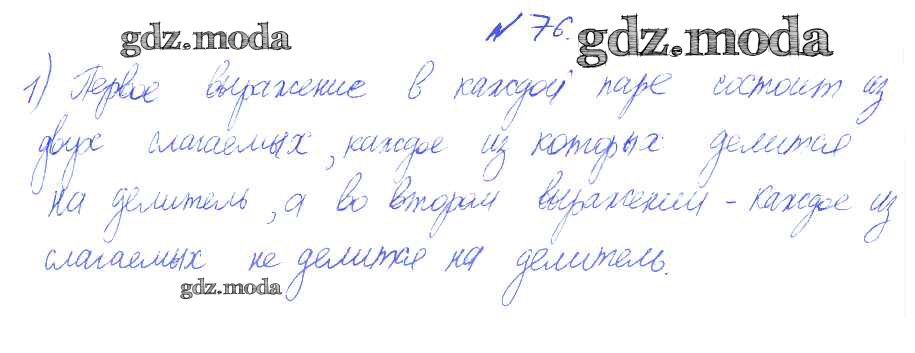 № 76.
gdz.moda gdz.moda
1) Первое выражение в каждой паре состоит из
двух слагаемых, каждое из которых делится
на делитель, а во втором выражении - каждое из
слагаемых не делится на делитель.
gdz.moda